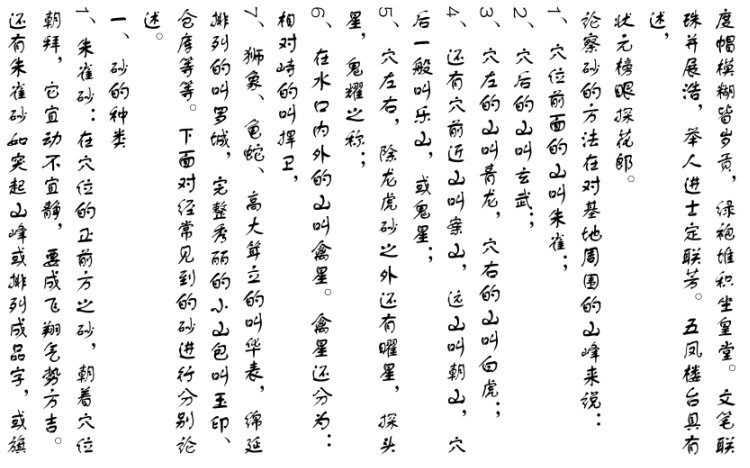 度帽模糊皆岁贡，绿袍堆积坐皇堂。文笔联
珠并展浩，举人进士定联芳。五凤楼台具有
述，
状元榜眼探花郎。
论察砂的方法在对基地周围的山峰来说：
1、穴位前面的山叫朱雀；
2、穴后的山叫玄武；
3、穴左的山叫青龙，穴右的山叫白虎；
4、还有穴前近山叫案山，远山叫朝山，穴
后一般叫乐山，或鬼星；
5、穴左右，除龙虎砂之外还有曜星，探头
星，鬼耀之称；
6、在水口内外的山叫禽星。禽星还分为：
相对峙的叫捍卫，
7、狮象、龟蛇、高大耸立的叫华表，绵延
排列的叫罗城，完整秀丽的小山包叫玉印、
仓库等等。下面对经常见到的砂进行分别论
述。
一、砂的种类
1、朱雀砂：在穴位的正前方之砂，朝着穴位
朝拜，它宜动不宜静，要成飞翔气势方吉。
还有朱雀砂如突起山峰或排列成品字，或旗